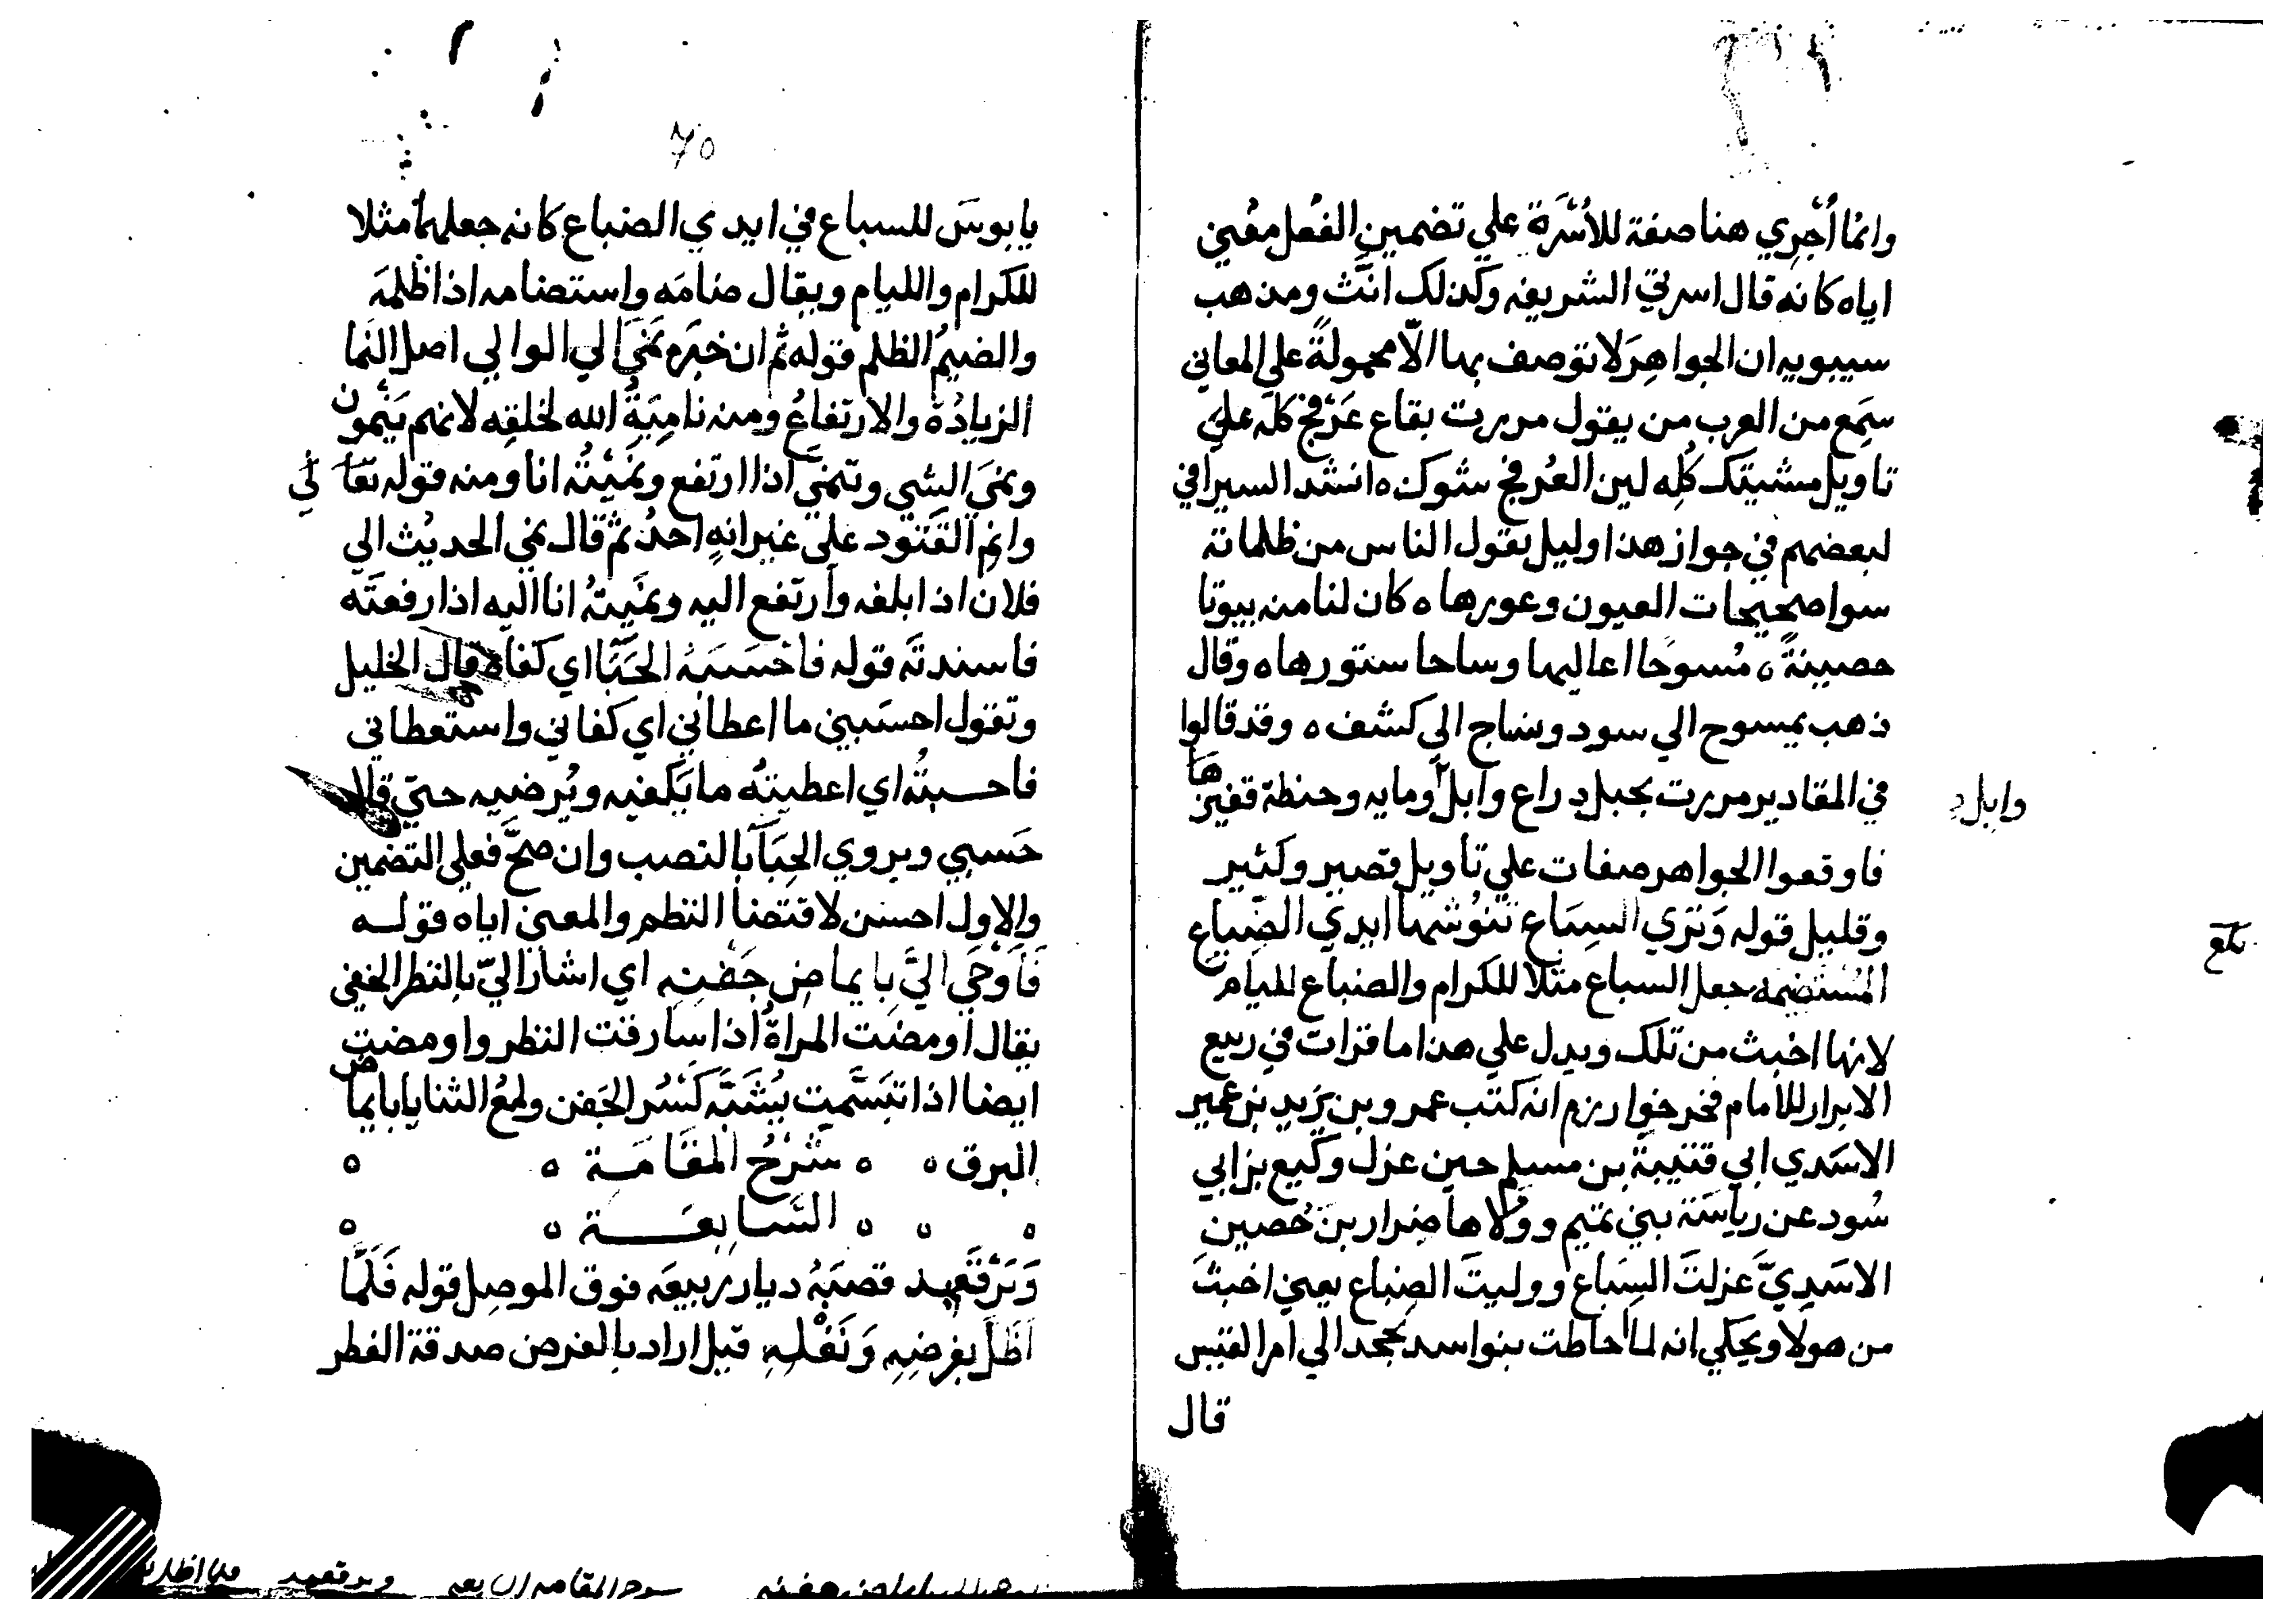 وانما أجري هنا صفة للأسرة علي تضمين الفعل معني
اياه كانه قال اسرتي الشريفه وكذلك انث ومذهب
سيبويه ان الجواهر لا توصف بها الا محمولة علي المعاني
سمع من العرب من يقول مررت بقاع عرفج كله علي
تاويل مشتبك كله لين العرفج شوك ه انشد السيرافي
لبعضهم في جواز هذا وليل يقول الناس من ظلماته
سوا صحيحات العيون وعورها ه كان لنا منه بيوتا
حصينة ه مسوحا اعاليها وساحا ستورها ه وقال
ذهب بمسوح الي سود وساج الي كشف ه وقد قالوا
في المقادير مررت بحبل دراع وابل ومايه وحنطة قفيزها
وابل د
فاوقعوا الجواهر صفات علي تاويل قصير وكثير
وقليل قوله وتري السباع تنوشها ايدي الضباع
المستضمه جعل السباع مثلا للكرام والضباع لليام
لانها اخبث من تلك ويدل علي هذا ما قرات في ربيع
الابرار للامام فخر خوارزم انه كتب عمرو بن يزيد بن عمير
الاسدي الي قتيبة بن مسلم حين عزل وكيع بن ابي
سود عن رياسة بني تميم وولاها ضرار بن حصين
الاسدي عزلت السباع ووليت الضباع يعني اخبث
من هولا ويحكي انه لما احاطت بنو اسد بحجد الي امر القيس
قال
يا بوس للسباع في ايدي الضباع كانه جعلهما مثلا
للكرام والليام ويقال ضامه واستضامه اذا ظلمه
والضيم الظلم قوله ثم ان خبره نمي الي الوالي اصل النما
الزيادة والارتفاع ومنه نامية الله لخلقه لانهم ينمون
ونمي الشي وتنمي اذا ارتفع ونميته انا ومنه قوله تعا لي
وانم القتود علي عيرانه احد ثم قال نمي الحديث الي
فلان اذا بلغه وارتفع اليه ونميته انا اليه اذا رفعته
فاسندته قوله فاحسبه الحبا اي كفاه قال الخليل
وتقول احسبني ما اعطاني اي كفاني واستعطاني
فاحسبته اي اعطيته ما يكفيه ويرضيه حتي قال
حسبي ويروي الحبا بالنصب وان صح فعلي التضمين
والاول احسن لاقتضا النظم والمعني اياه قوله
فاوحي الي بايماض جفنه اي اشار الي بالنظر الخفي
يقال اومضت المراة اذا سارقت النظر واومضت
ايضا اذا تبسمت يشبه كسر الجفن ولمع الثنايا بايماض
البرق ه ه شرح المقامة ه ه
ه ه ه السابعة ه ه
وبرقعيد قصبة ديار ربيعه فوق الموصل قوله فلما
اظل بفرضه ونفله قيل اراد بالفرض صدقة الفطر